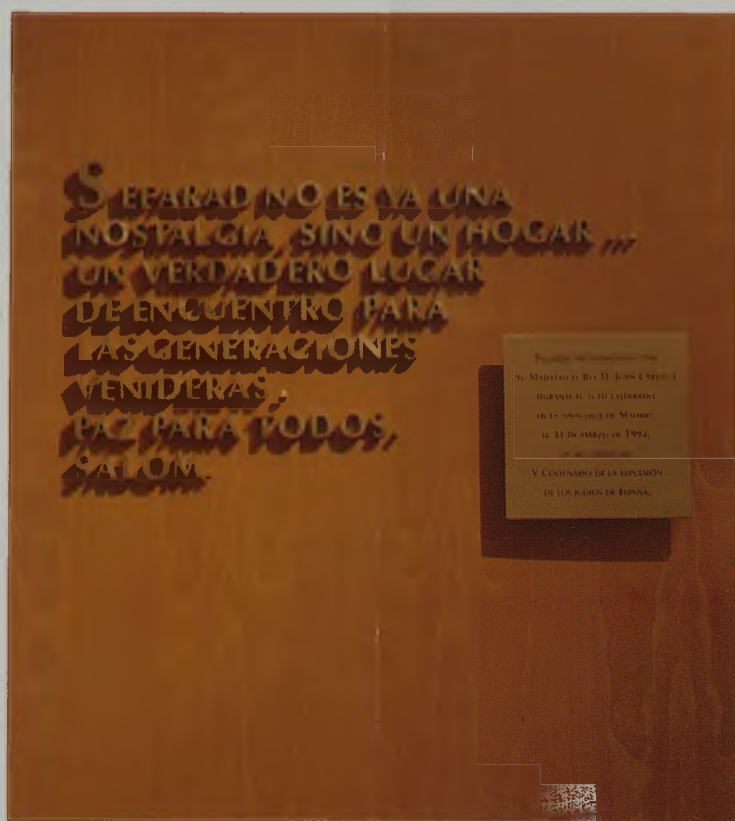 SEFARAD NO ES YA UNA
NOSTALGIA, SINO UN HOGAR ...
UN VERDADERO LUGAR
DE ENCUENTRO PARA
LAS GENERACIONES
VENIDERAS.
PAZ PARA TODOS,
SALOM.
SU MAJESTAD EL REY D. JUAN CARLOS I
DURANTE EL ACTO CELEBRADO
EN LA SINAGOGA DE MADRID,
EL 31 DE MARZO DE 1992,
V CENTENARIO DE LA EXPULSIÓN
DE LOS JUDÍOS DE ESPAÑA.